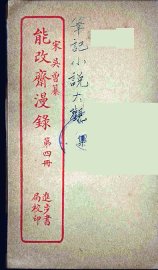 筆記小說大觀
宋吳曾纂
能改齋漫錄
第四冊
進步書
局校印